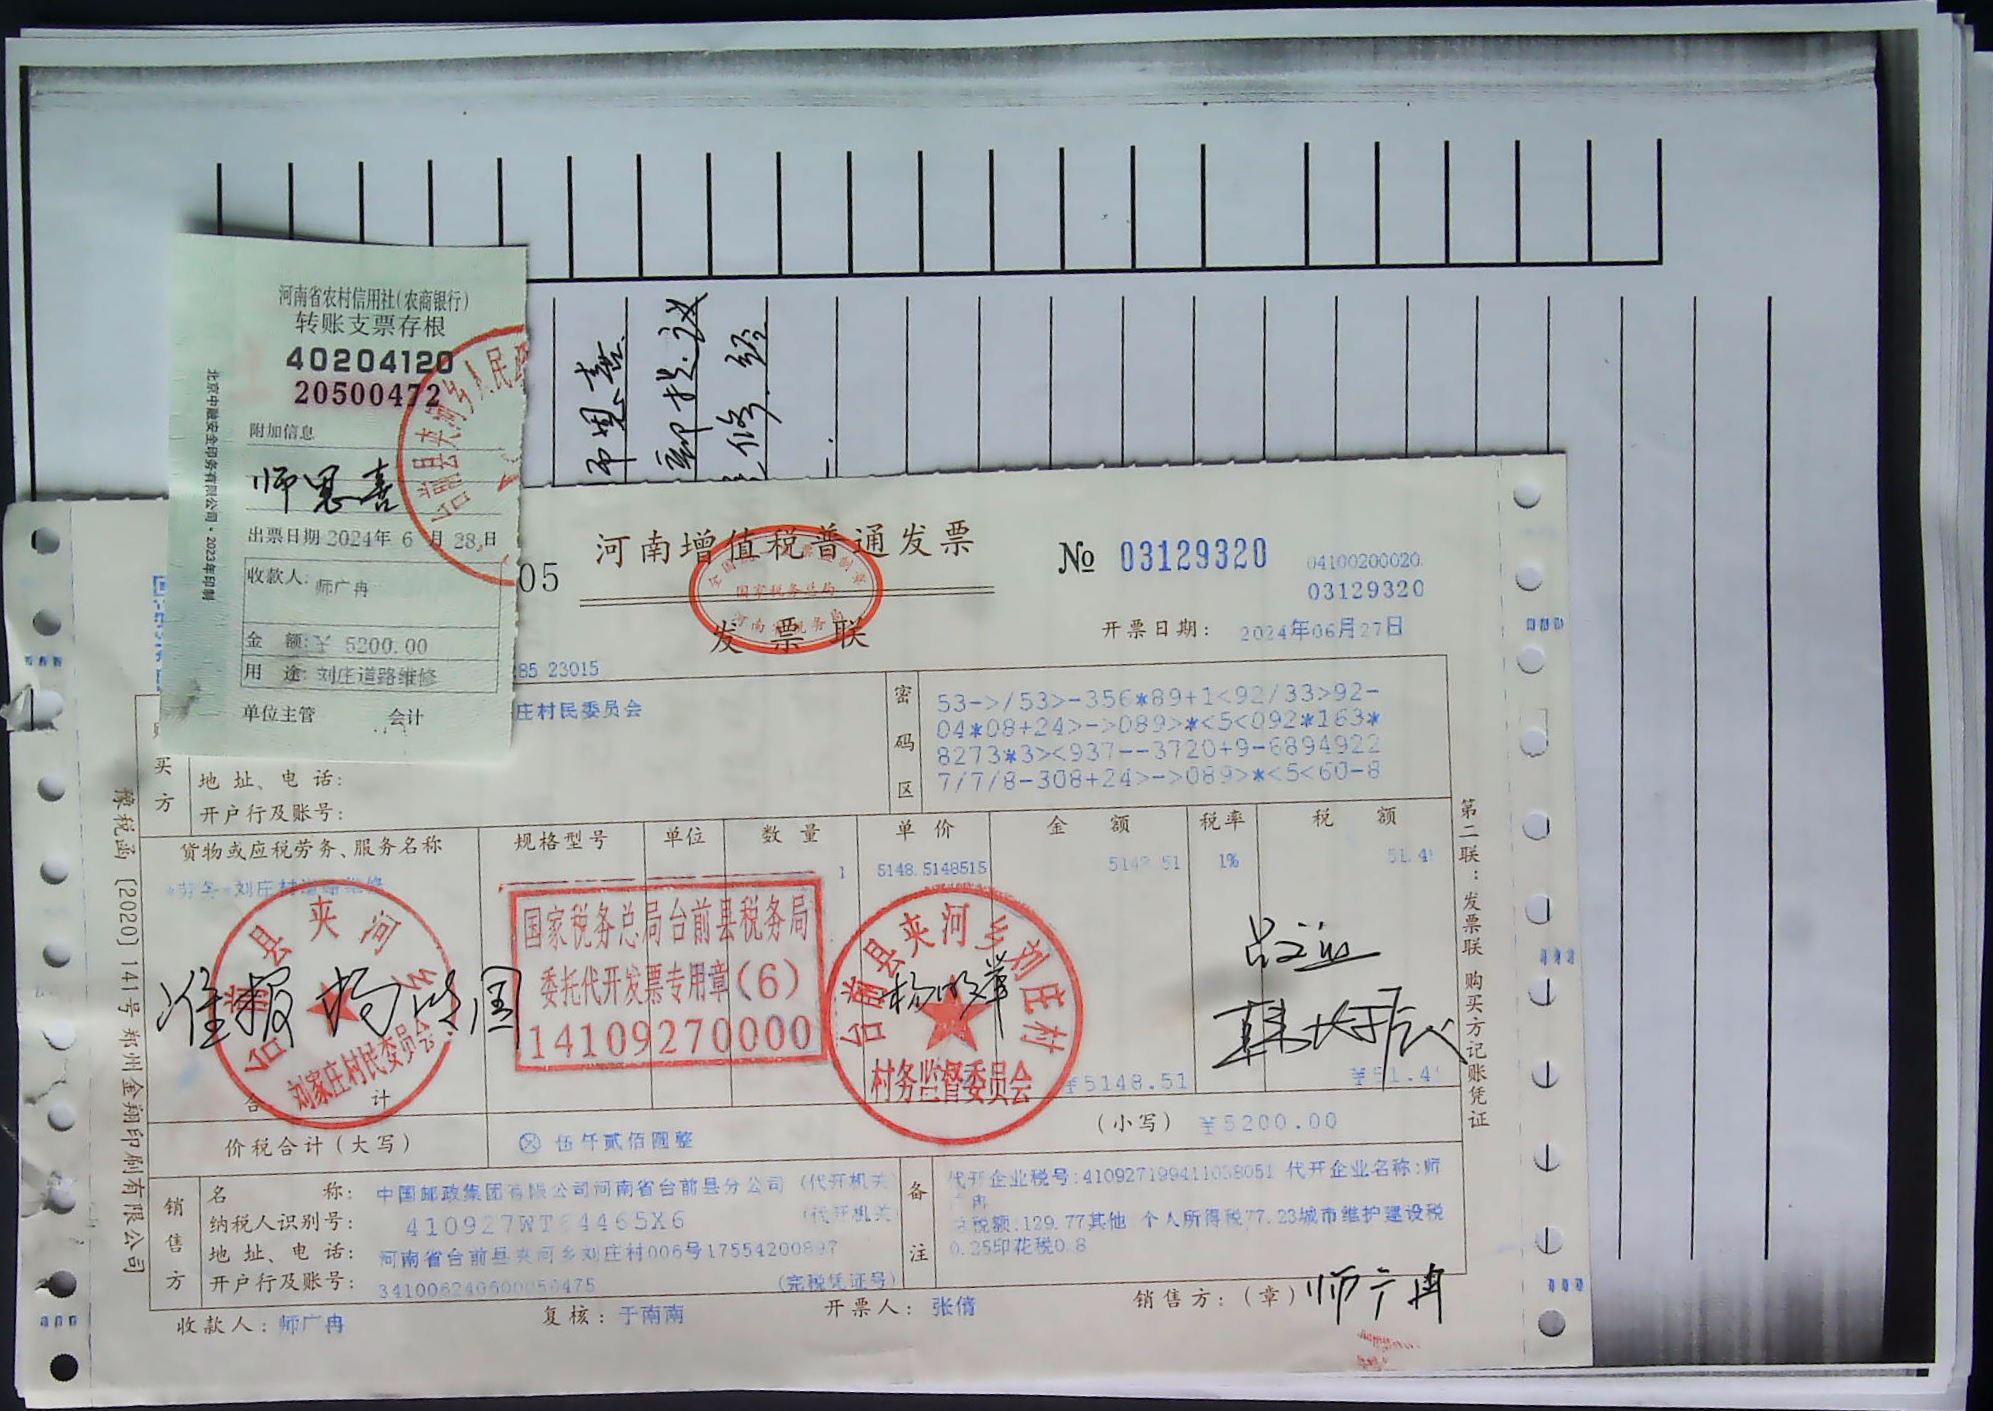 河南省农村信用社(农商银行)
转账支票存根
40204120
20500472
附加信息
师恩喜
出票日期 2024年 6 月 28 日
收款人: 师广冉
金 额:￥ 5200.00
用 途: 刘庄道路维修
单位主管 会计
北京中融安全印务有限公司·2023年印制
师恩喜
05
河南增值税普通发票
国家税务总局
发票联
№ 03129320
04100200020
03129320
开票日期: 2024年06月27日
85 23015
庄村民委员会
买方
地址、电话:
开户行及账号:
密码区
53->/53>-356*89+1<92/33>92-
04*08+24>->089>*<5<092*163*
8273*3><937--3720+9-6894922
7/7/8-308+24>->089>*<5<60-8
货物或应税劳务、服务名称 规格型号 单位 数量 单价 金额 税率 税额
*劳务*刘庄村道路维修 1 5148.5148515 5148.51 1% 51.4
台前县夹河乡
刘家庄村民委员会
准报
国家税务总局台前县税务局
委托代开发票专用章(6)
14109270000
台前县夹河乡刘庄村
村务监督委员会
合计 ￥5148.51 ￥51.4
价税合计(大写) 伍仟贰佰圆整 (小写) ￥5200.00
销售方
名称: 中国邮政集团有限公司河南省台前县分公司 (代开机关)
纳税人识别号: 410927WT64465X6 (代开机关)
地址、电话: 河南省台前县夹河乡刘庄村006号17554200897
开户行及账号: 341006240600050475 (完税凭证号)
备注
代开企业税号:410927199411038051 代开企业名称:师
广冉
税额:129.77其他 个人所得税77.23城市维护建设税
0.25印花税0.8
收款人: 师广冉 复核: 于南南 开票人: 张倩 销售方:(章) 师广冉
第二联:发票联 购买方记账凭证
豫税函[2020]141号 郑州金翔印刷有限公司